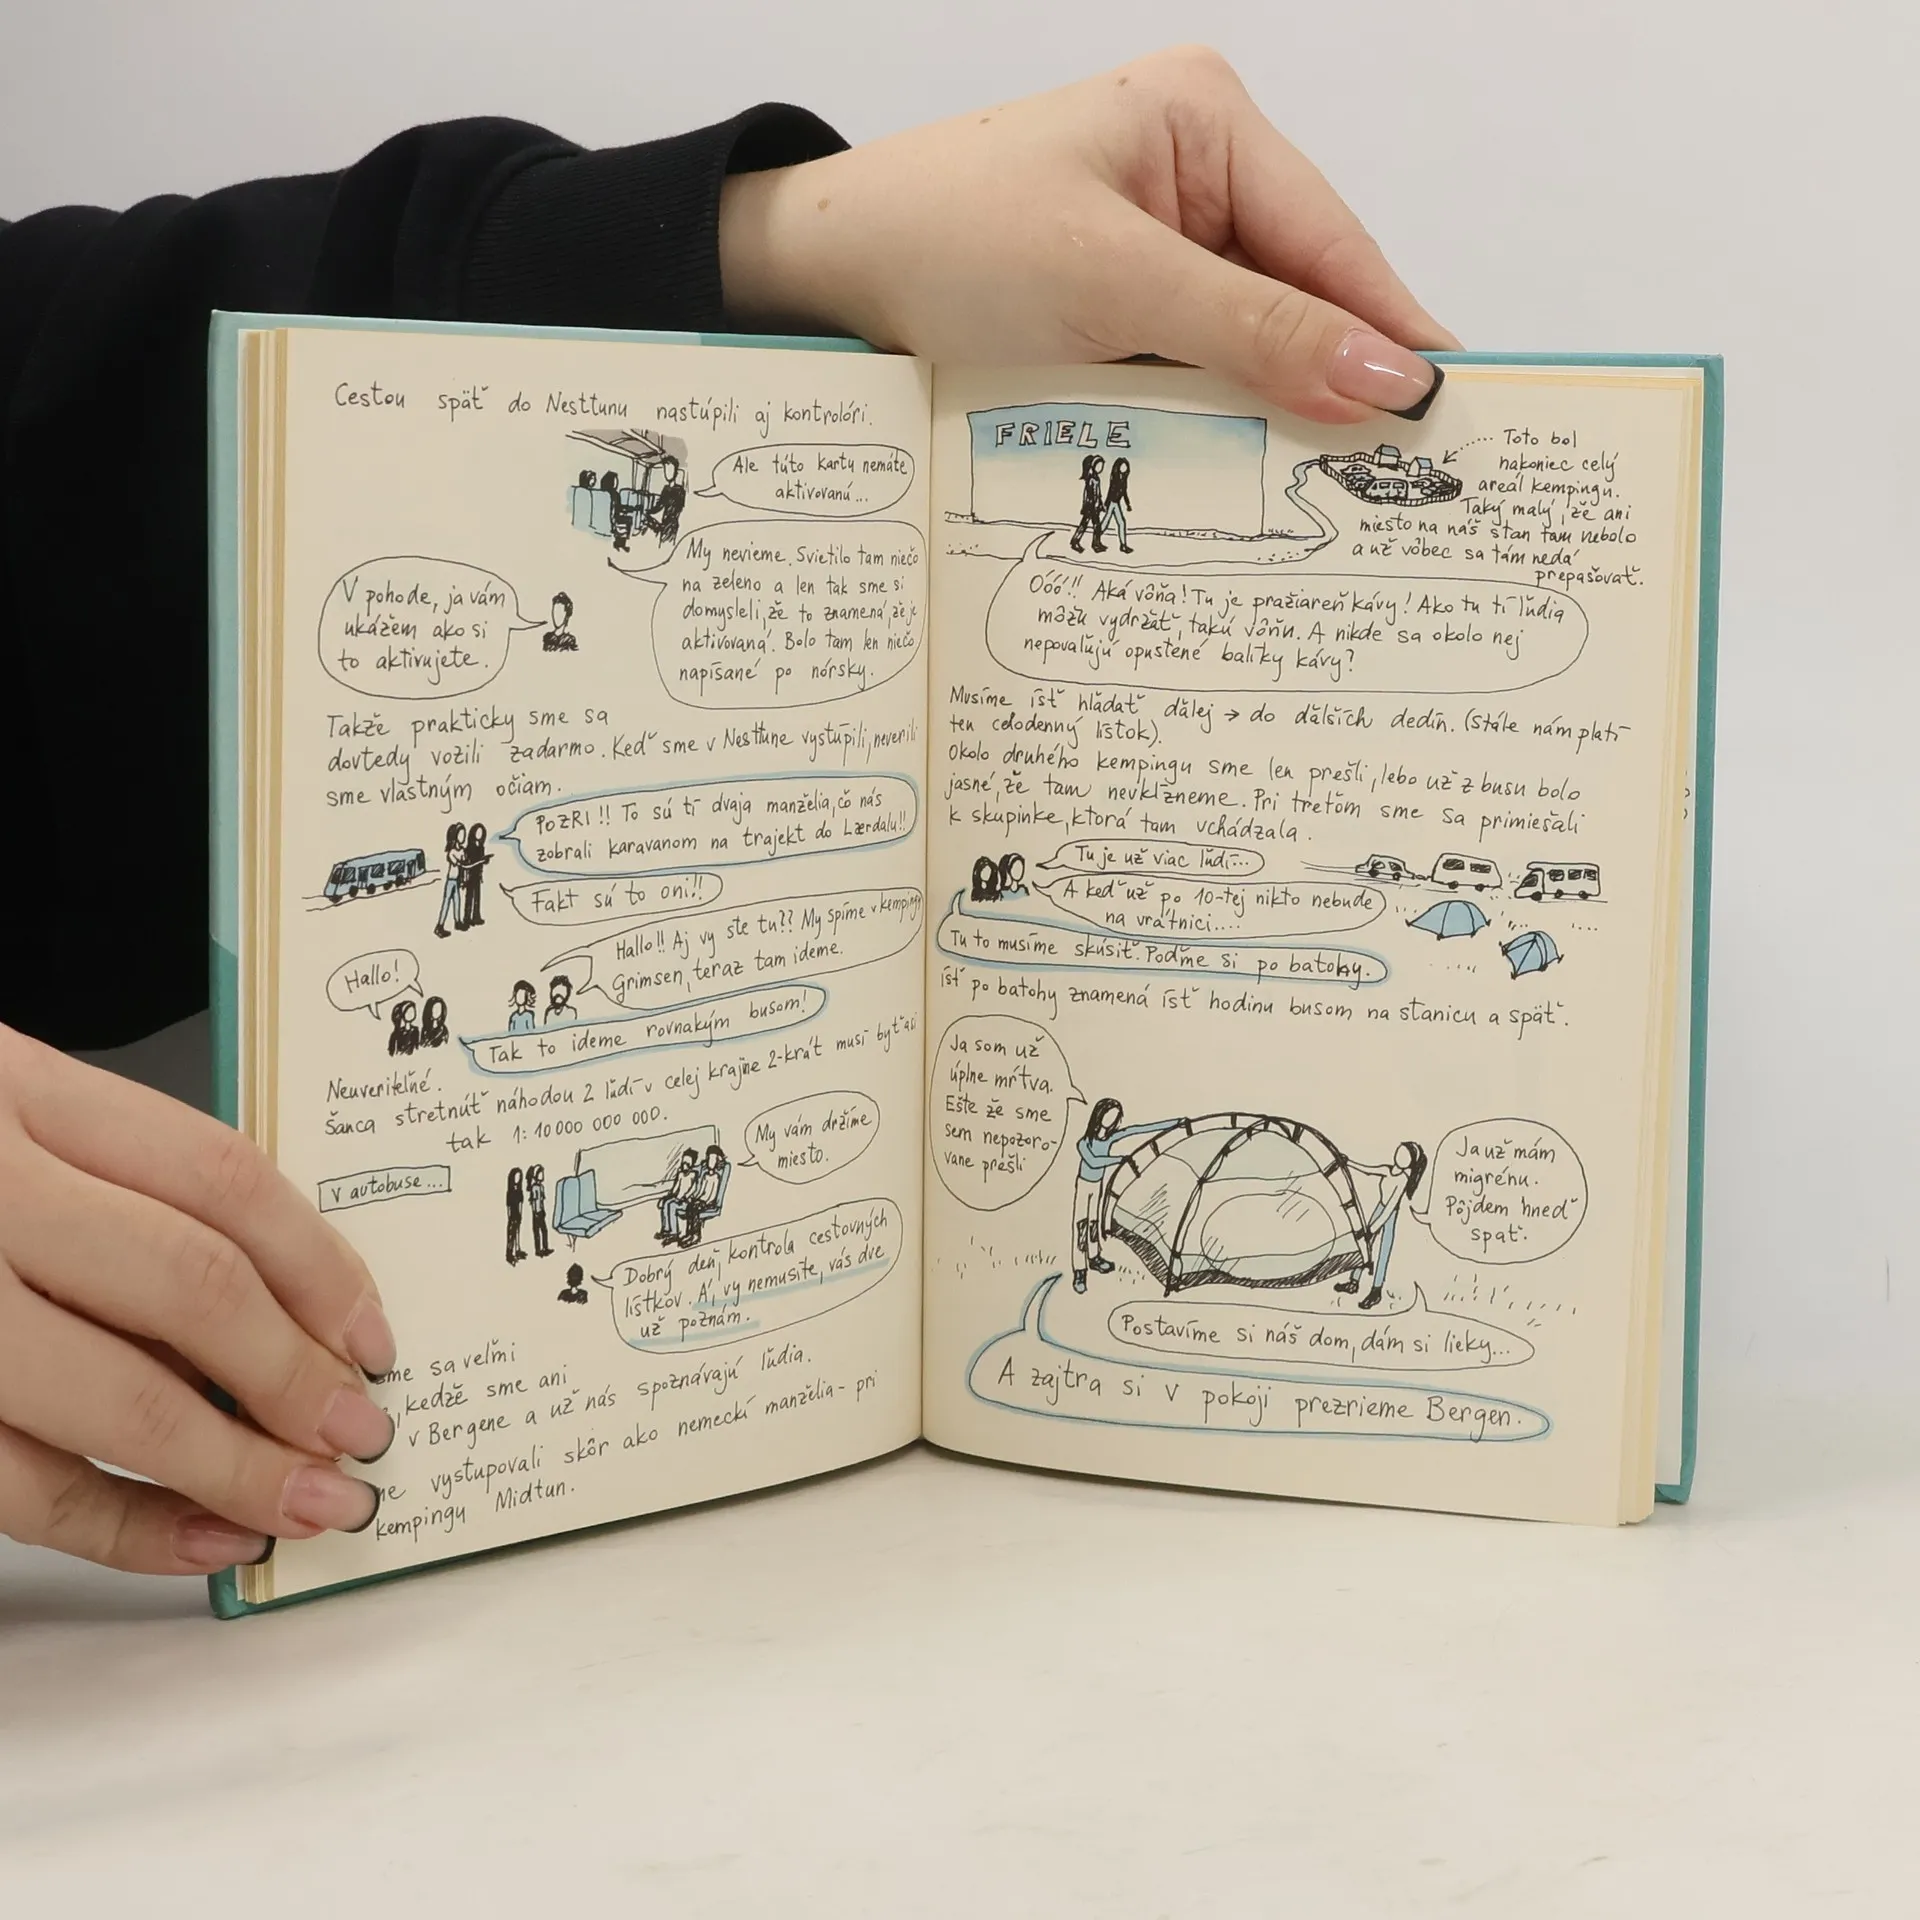 Cestou späť do Nesttunu nastúpili aj kontrolóri.
Ale túto kartu nemáte
aktivovanú...
My nevieme. Svietilo tam niečo
na zeleno a len tak sme si
domysleli, že to znamená, že je
aktivovaná. Bolo tam len niečo
napísané po nórsky.
V pohode, ja vám
ukážem ako si
to aktivujete.
Takže prakticky sme sa
dovtedy vozili zadarmo. Keď sme v Nesttune vystúpili, neverili
sme vlastným očiam.
POZRI!! To sú tí dvaja manželia, čo nás
zobrali karavanom na trajekt do Lærdalu!!
Fakt sú to oni!!
Hallo!! Aj vy ste tu?? My spíme v kempingu
Grimsen, teraz tam ideme.
Hallo!
Tak to ideme rovnakým busom!
Neuveriteľné.
Šanca stretnúť náhodou 2 ľudí v celej krajine 2-krát musí byť asi
tak 1:10 000 000 000.
My vám držíme
miesto.
V autobuse...
Dobrý deň, kontrola cestovných
lístkov. Á, vy nemusíte, vás dve
už poznám.
sme sa veľmi
, keďže sme ani
v Bergene a už nás spoznávajú ľudia.
vystupovali skôr ako nemeckí manželia - pri
kempingu Midtun.
FRIELE
Toto bol
nakoniec celý
areál kempingu.
Taký malý, že ani
miesto na náš stan tam nebolo
a už vôbec sa tam nedá
prepašovať.
Óóó!! Aká vôňa! Tu je pražiareň kávy! Ako tu tí ľudia
môžu vydržať, takú vôňu. A nikde sa okolo nej
nepovaľujú opustené balíky kávy?
Musíme ísť hľadať ďalej → do ďalších dedín. (Stále nám platí
ten celodenný lístok).
Okolo druhého kempingu sme len prešli, lebo už z busu bolo
jasné, že tam nevkĺzneme. Pri treťom sme sa primiešali
k skupinke, ktorá tam vchádzala.
Tu je už viac ľudí...
A keď už po 10-tej nikto nebude
na vrátnici....
Tu to musíme skúsiť. Poďme si po batohy.
Ísť po batohy znamená ísť hodinu busom na stanicu a späť.
Ja som už
úplne mŕtva.
Ešte že sme
sem nepozoro-
vane prešli
Ja už mám
migrénu.
Pôjdem hneď
spať.
Postavíme si náš dom, dám si lieky...
A zajtra si v pokoji prezrieme Bergen.